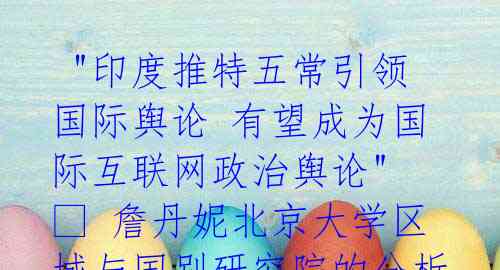 "印度推特五常引领
国际舆论 有望成为国
际互联网政治舆论"
□ 詹丹妮北京大学区
域与国别研究院的分析